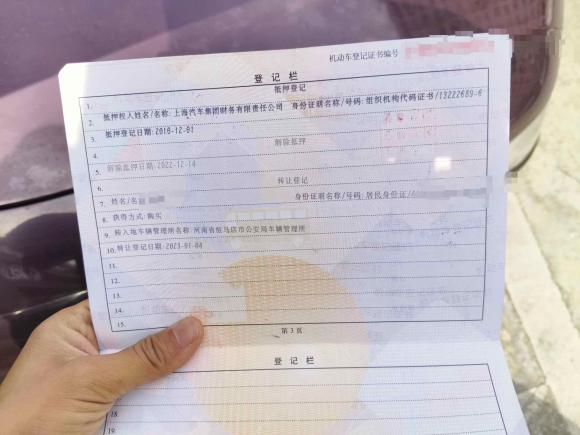 机动车登记证书编号
登记栏
1. 抵押登记
2. 抵押权人姓名/名称:上海汽车集团财务有限责任公司 身份证明名称/号码:组织机构代码证书/13222689-6
3. 抵押登记日期:2018-12-01
4. 解除抵押
5. 解除抵押日期:2022-12-14
6. 转让登记
7. 姓名/名 身份证明名称/号码:居民身份证/
8. 获得方式:购买
9. 转入地车辆管理所名称:河南省驻马店市公安局车辆管理所
10. 转让登记日期:2023-01-04
11.
12.
13.
14.
15.
第3页
登记栏
18
19